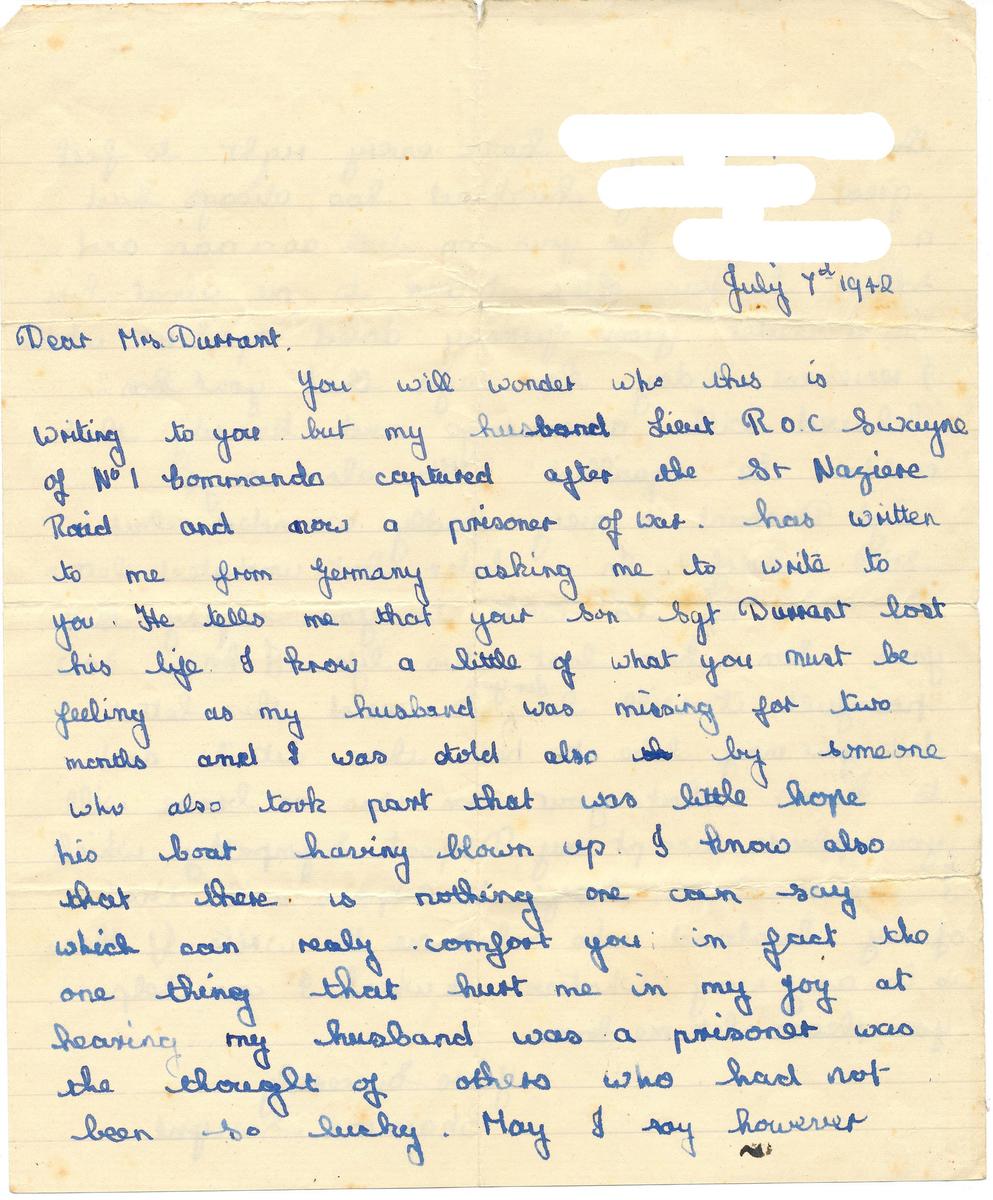 July 7th 1942
Dear Mrs. Durrant.
You will wonder who this is
writing to you but my husband Lieut R O C Swayne
of No 1 Commando captured after the St Naziere
Raid and now a prisoner of war. has written
to me from Germany asking me to write to
you. He tells me that your son Sgt Durrant lost
his life I know a little of what you must be
feeling as my husband was missing for two
months and I was told also by someone
who also took part that was little hope
his boat having blown up I know also
that there is nothing one can say
which can realy comfort you in fact the
one thing that hurt me in my joy at
hearing my husband was a prisoner was
the thought of others who had not
been so lucky. May I say however